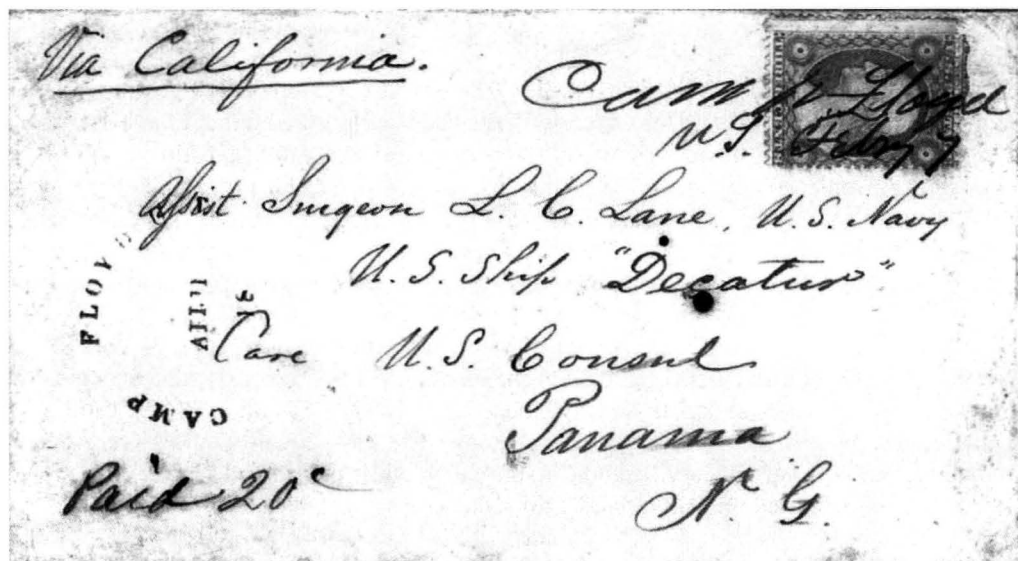 Via California.
Camp Floyd
U.S. Feby 7
Assist Surgeon L. C. Lane, U. S. Navy
U. S. Ship "Decatur"
Care U. S. Consul
Panama
N G.
Paid 20c
CAMP FLOYD